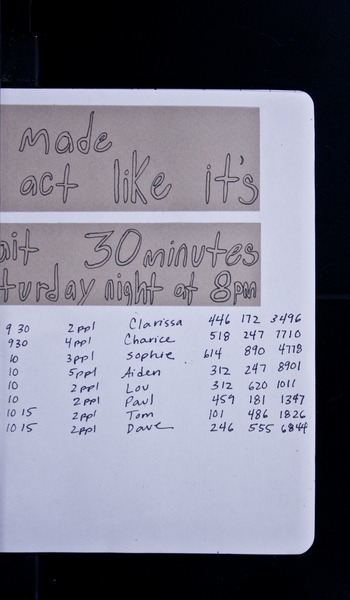 made
act like it's
ait 30 minutes
turday night at 8pm
9 30 2ppl Clarissa 446 172 3496
930 4ppl Charice 518 247 7710
10 3ppl Sophie 614 890 4778
10 5ppl Aiden 312 247 8901
10 2ppl Lou 312 620 1011
10 2ppl Paul 459 181 1347
10 15 2ppl Tom 101 486 1826
10 15 2ppl Dave 246 555 6844